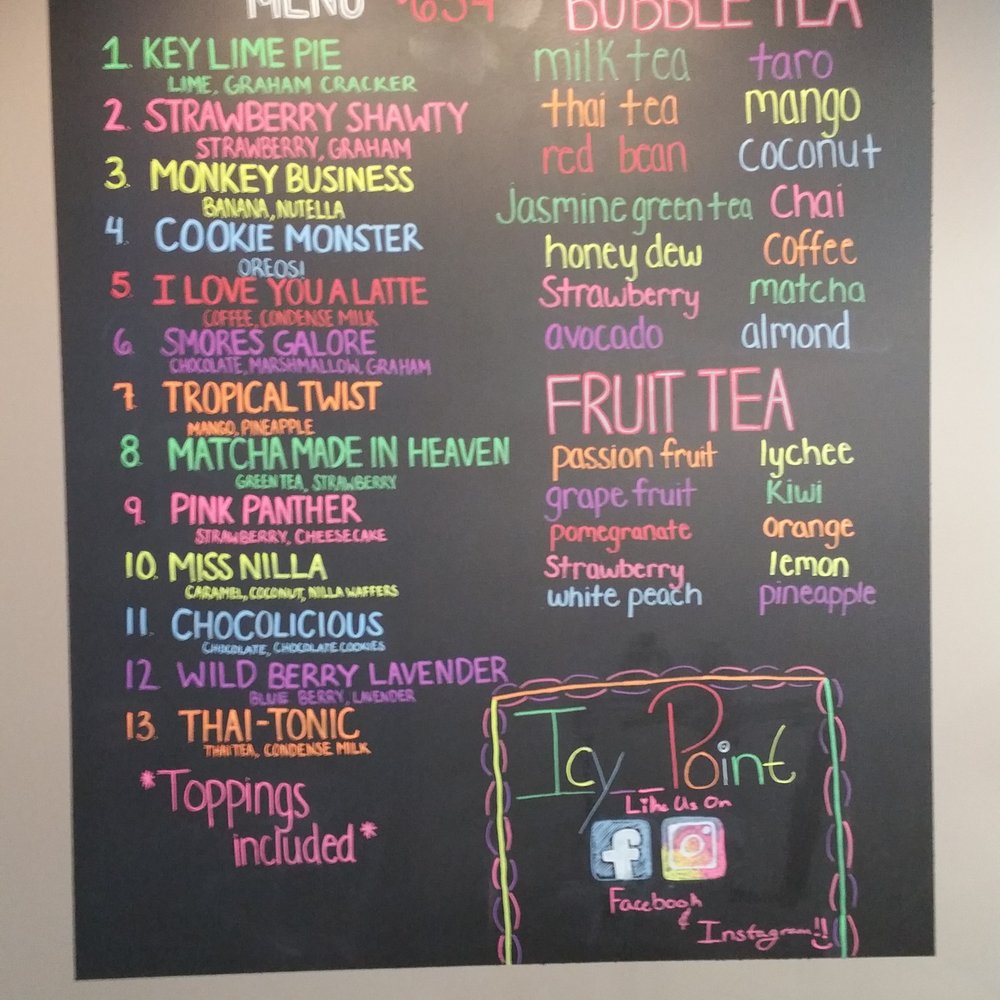 MENU $6.54
1. KEY LIME PIE
LIME, GRAHAM CRACKER
2. STRAWBERRY SHAWTY
STRAWBERRY, GRAHAM
3. MONKEY BUSINESS
BANANA, NUTELLA
4. COOKIE MONSTER
OREOS!
5. I LOVE YOU A LATTE
COFFEE, CONDENSE MILK
6. SMORES GALORE
CHOCOLATE, MARSHMALLOW, GRAHAM
7. TROPICAL TWIST
MANGO, PINEAPPLE
8. MATCHA MADE IN HEAVEN
GREEN TEA, STRAWBERRY
9. PINK PANTHER
STRAWBERRY, CHEESECAKE
10. MISS NILLA
CARAMEL, COCONUT, NILLA WAFFERS
11. CHOCOLICIOUS
CHOCOLATE, CHOCOLATE COOKIES
12. WILD BERRY LAVENDER
BLUE BERRY, LAVENDER
13. THAI-TONIC
THAI TEA, CONDENSE MILK
*Toppings
included*
BUBBLE TEA
milk tea taro
thai tea mango
red bean coconut
Jasmine green tea Chai
honey dew coffee
Strawberry matcha
avocado almond
FRUIT TEA
passion fruit lychee
grape fruit Kiwi
pomegranate orange
Strawberry lemon
white peach pineapple
Icy Point
Like Us On
f
Facebook
&
Instagram!!